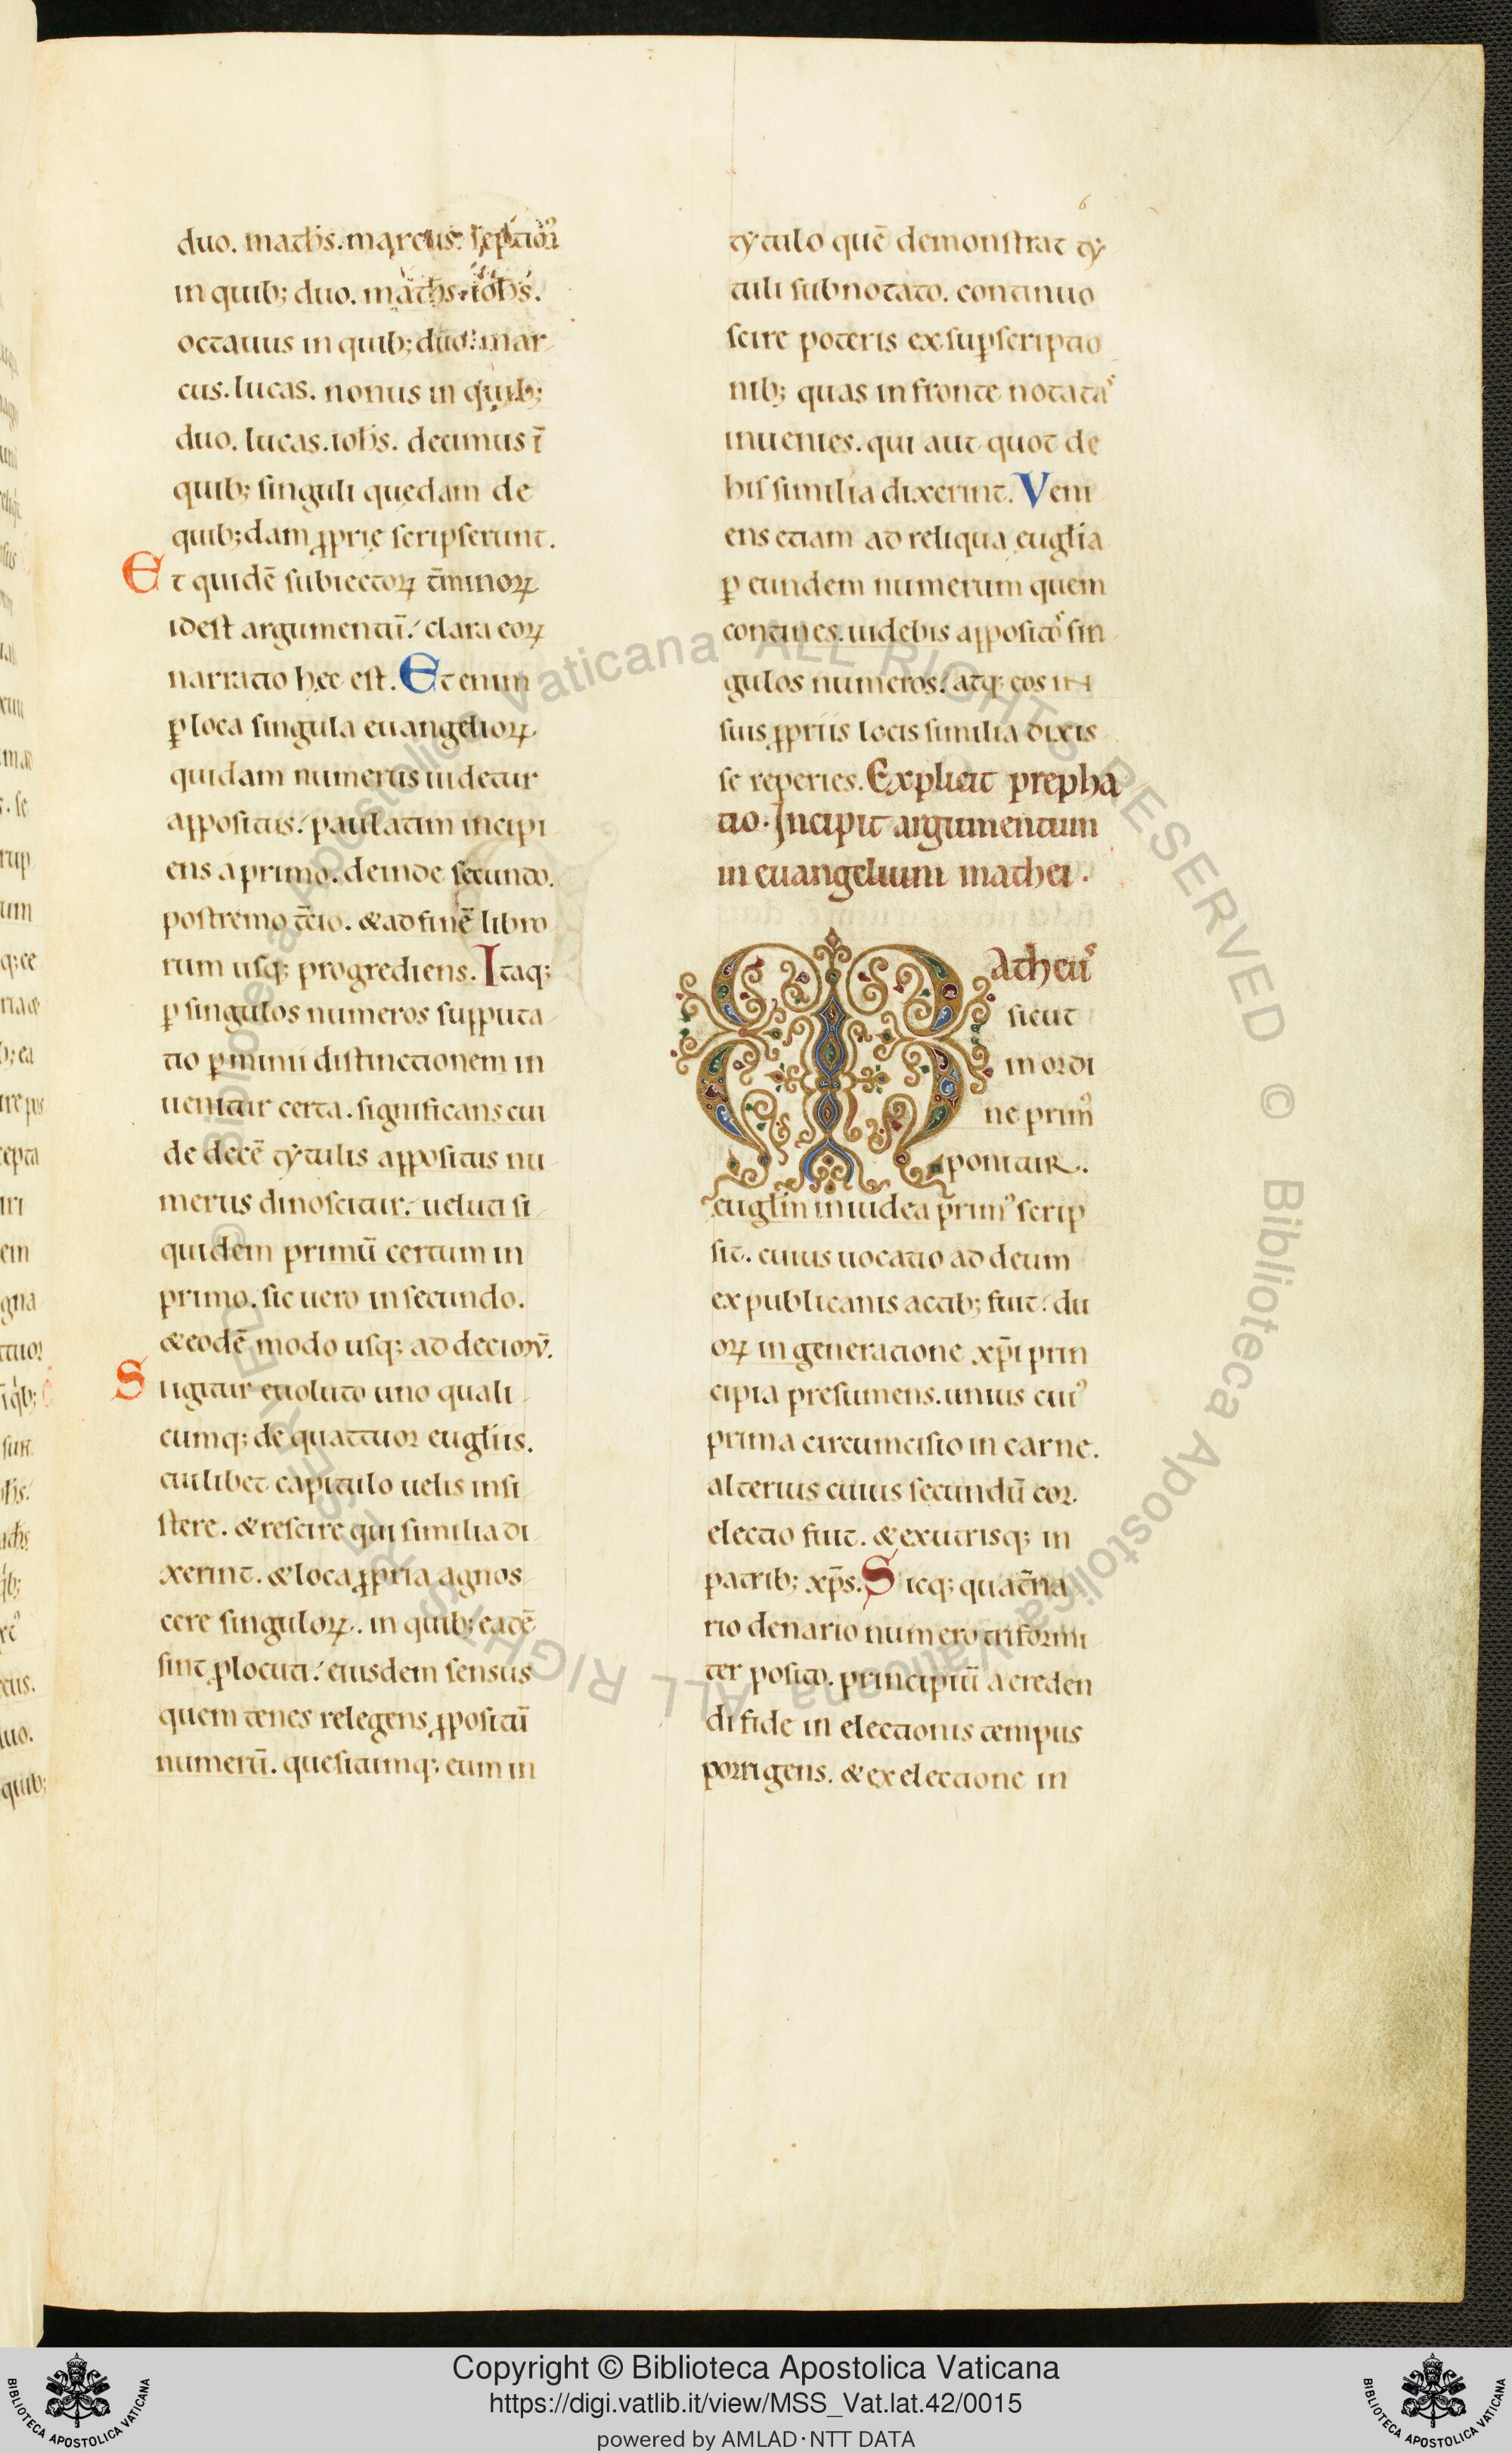 6
duo. math̄s. marcus. septim᷒
in quib; duo. math̄s. ioh̄s.
octauus in quib; duo. mar
cus. lucas. nonus in quib;
duo. lucas. ioh̄s. decimus ī
quib; singuli quędam de
quib;dam ꝓprię scripserunt.
Et quidē subiectoꝝ t̄minoꝝ
idest argumentū. clara eoꝝ
narratio hęc est. Etenim
ꝑ loca singula euangelioꝝ
quidam numerus uidetur
appositus. paulatim incipi
ens a primo. deinde secundo.
postremo t̄cio. & ad finē libro
rum usq; progrediens. Itaq;
ꝑ singulos numeros supputa
tio ꝑ minii distinctionem in
uenitur certa. significans cui
de decē tẏtulis appositus nu
merus dinoscitur. ueluti si
quidem primū certum in
primo. sic uero in secundo.
& eodē modo usq; ad decimū.
Si igitur euoluto uno quali
cumq; de quattuor eugl̄iis.
cuilibet capitulo uelis insi
stere. & rescire qui similia di
xerint. & loca ꝓpria agnos
cere singuloꝝ. in quib; eadē
sint ꝓlocuti. eiusdem sensus
quem tenes relegens ꝓpositū
numerū. quesitumq; eum in
tẏtulo quē demonstrat tẏ
tuli subnotatio. continuo
scire poteris ex suꝑscriptio
nib; quas in fronte notata᷒
inuenies. qui aut quot de
his similia dixerint. Veni
ens etiam ad reliqua eugl̄ia
ꝑ eundem numerum quem
contines. uidebis apposito᷒ sin
gulos numeros. atq; eos in
suis ꝓpriis locis similia dixis
se reperies. Explicit prepha
tio. Incipit argumentum
in euangelium mathei.
Matheu᷒
sicut
in ordi
ne prim᷒
ponitur.
eugl̄m in iudea prim᷒ scrip
sit. cuius uocatio ad deum
ex publicanis actib; fuit. du
oꝝ in generatione xp̄i prin
cipia presumens. unius cui᷒
prima circumcisio in carne.
alterius cuius secundū cor.
electio fuit. & ex utrisq; in
patrib; xp̄s. Sicq; quat̄na
rio denario numero triformi
ter posito. principiū a creden
di fide in electionis tempus
porrigens. & ex electione in
Copyright © Biblioteca Apostolica Vaticana
https://digi.vatlib.it/view/MSS_Vat.lat.42/0015
powered by AMLAD·NTT DATA
BIBLIOTECA APOSTOLICA VATICANA
BIBLIOTECA APOSTOLICA VATICANA
© Biblioteca Apostolica Vaticana ALL RIGHTS RESERVED
© Biblioteca Apostolica Vaticana ALL RIGHTS RESERVED